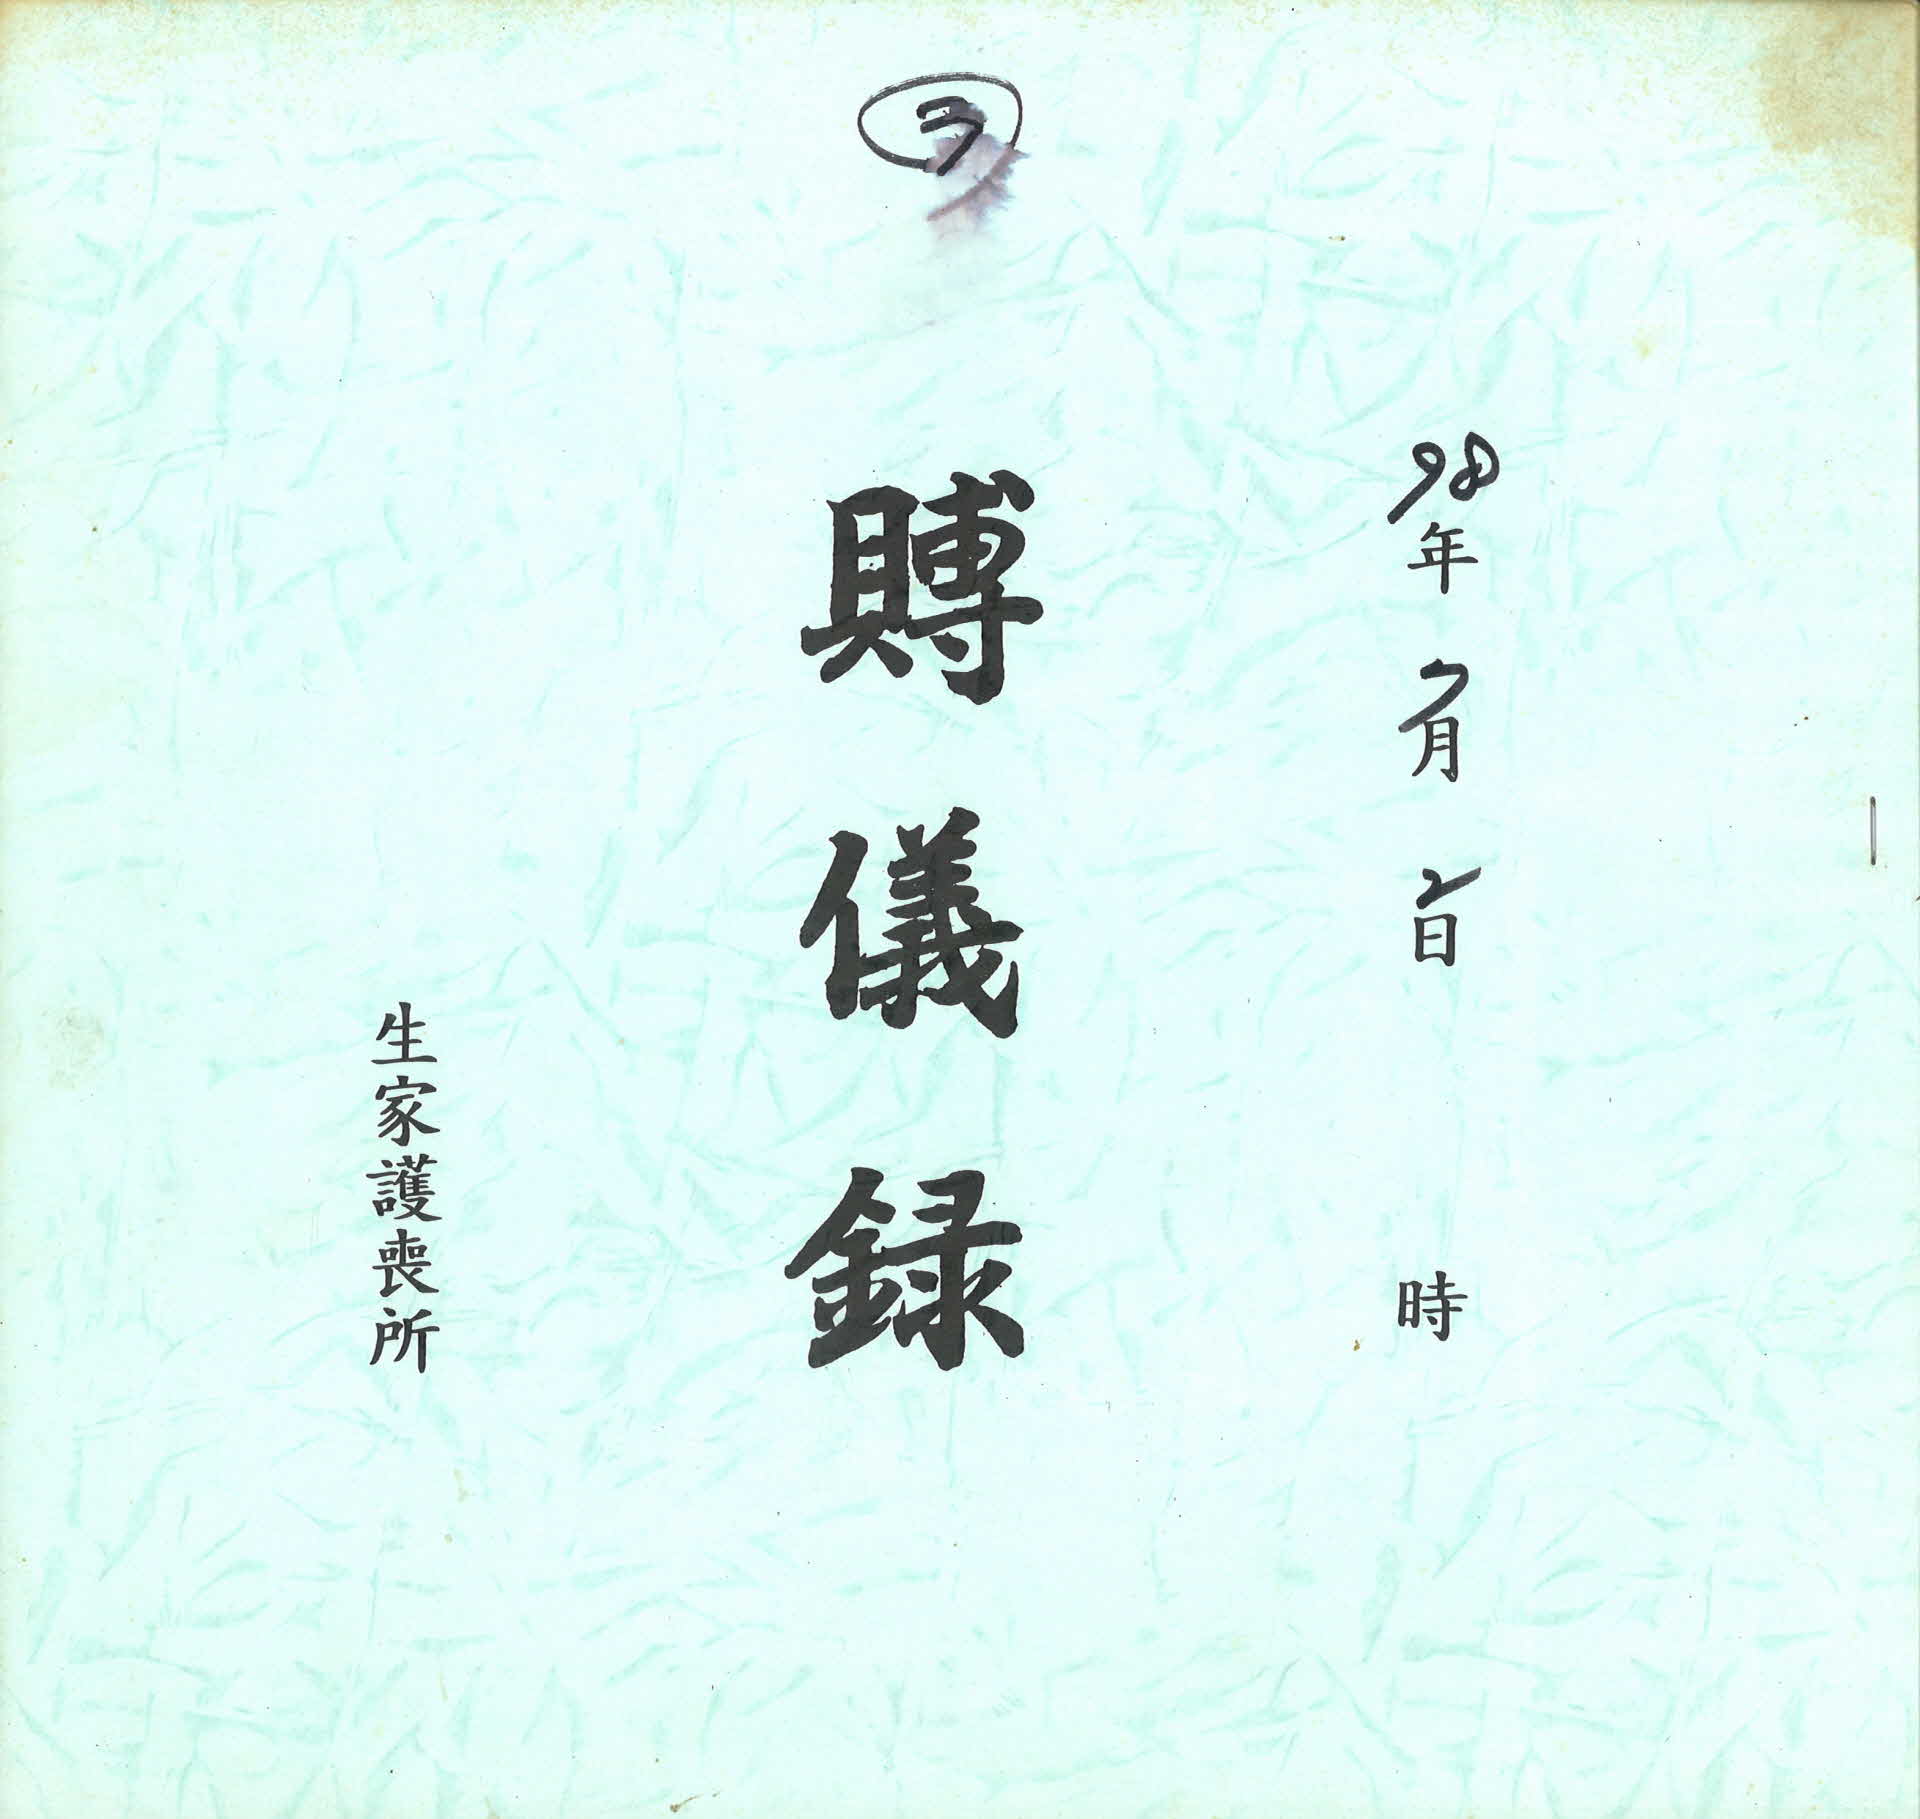 3
98年 7月 2日 時
賻儀録
生家護喪所